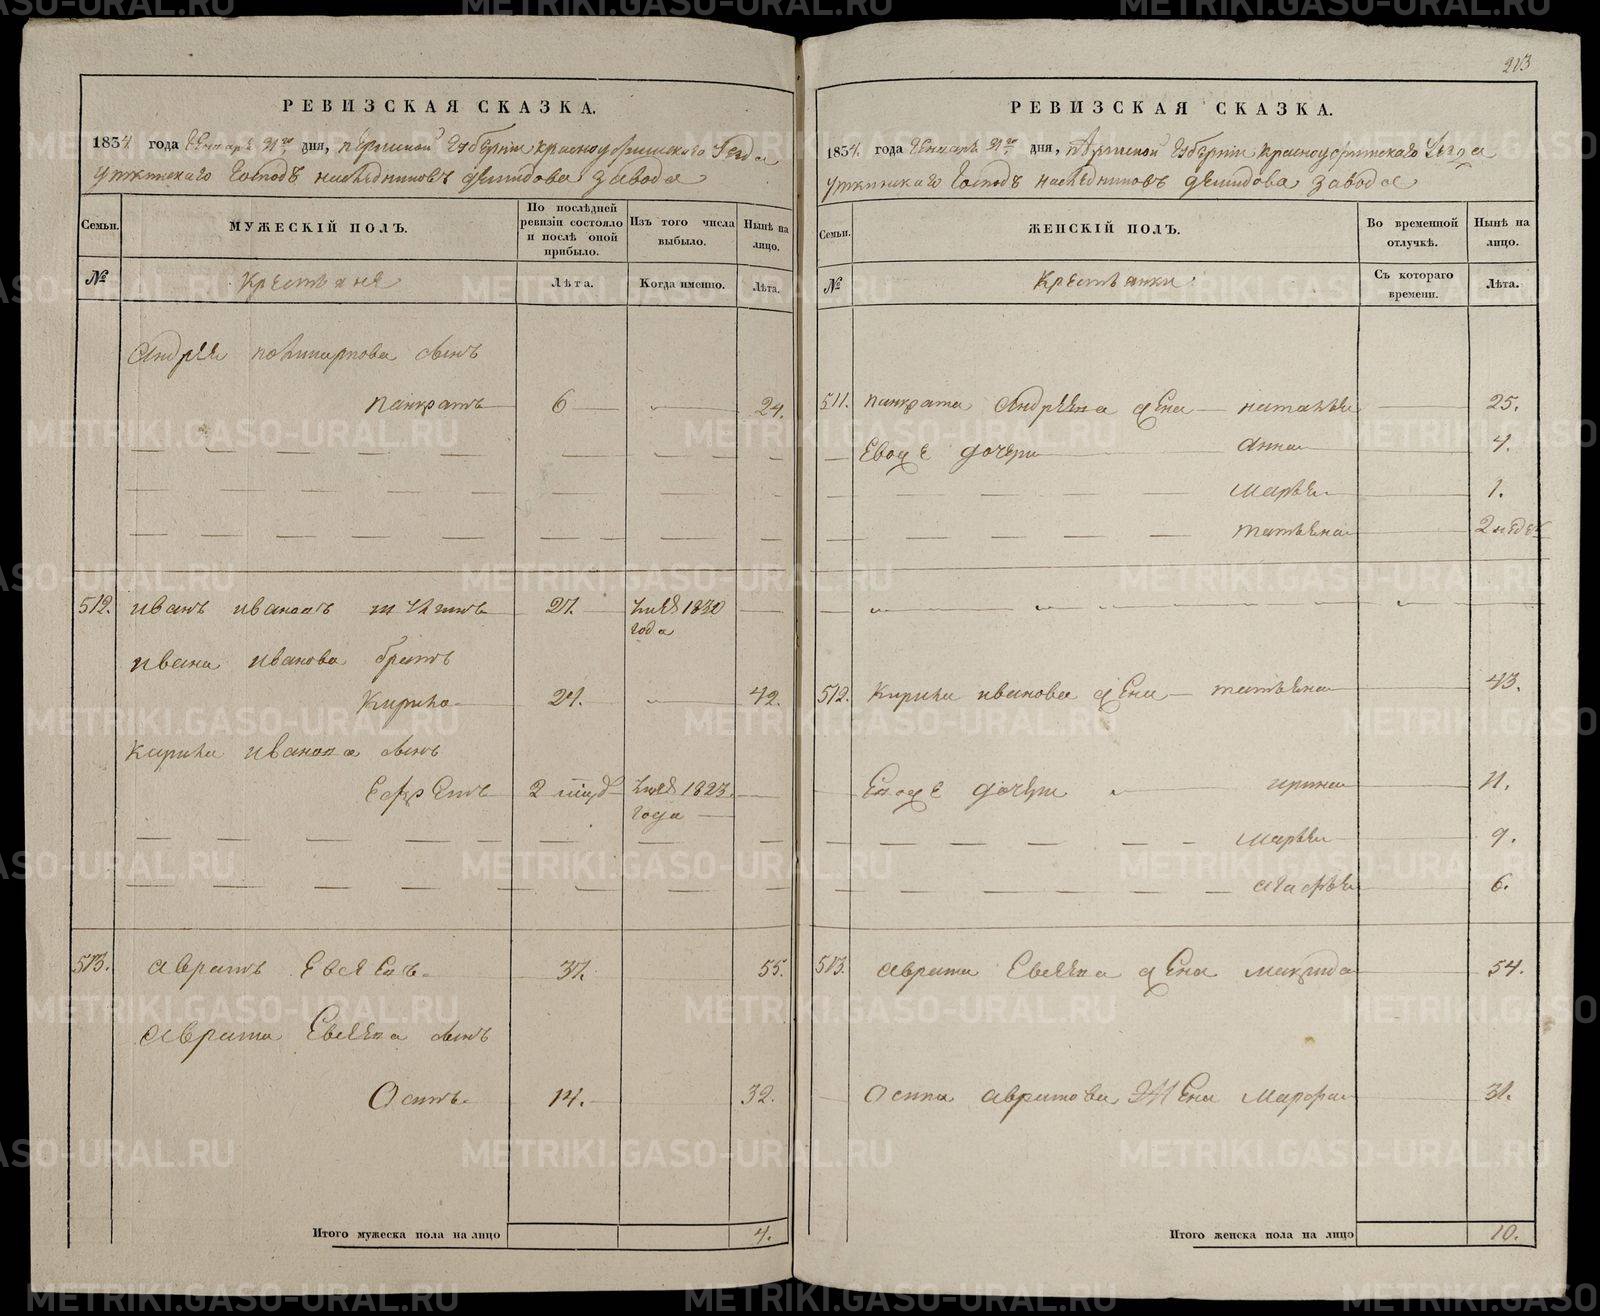 213
РЕВИЗСКАЯ СКАЗКА.
1834 года Генваря дня, Пермской Губернии Красноуфимского Уезда
Уткинского Господъ наследниковъ Демидова завода
Семьи. МУЖЕСКІЙ ПОЛЪ. По послѣдней ревизіи состояло и послѣ оной прибыло. Изъ того числа выбыло. Нынѣ на лицо.
№ Крестьяне Лѣта. Когда именно. Лѣта.
Андрея Поликарпова сынъ
Панкратъ 6 24.
512. Иванъ Ивановъ 27. 1830 года
Ивана Иванова братъ
Кирило 24. 42.
Кирила Иванова сынъ
Ефремъ 2 1823. года
513. Аврамъ Евсеевъ 37. 55.
Аврама Евсеева сынъ
Осипъ 14. 32.
Итого мужеска пола на лицо 4.
РЕВИЗСКАЯ СКАЗКА.
1834. года Генваря дня, Пермской Губернии Красноуфимского Уезда
Уткинского Господъ наследниковъ Демидова завода
Семьи. ЖЕНСКІЙ ПОЛЪ. Во временной отлучкѣ. Нынѣ на лицо.
№ Крестьянки Съ котораго времени. Лѣта.
511. Панкрата Андреева жена Наталья 25.
Евоже дочери Анна 4.
Марья 1.
Татьяна 2 недел
512. Кирила Иванова жена Татьяна 43.
Евоже дочери Ирина 11.
Марья 9.
Агафья 6.
513. Аврама Евсеева жена Макрида 54.
Осипа Аврамова жена Марфа 31.
Итого женска пола на лицо 10.
METRIKI.GASO-URAL.RU